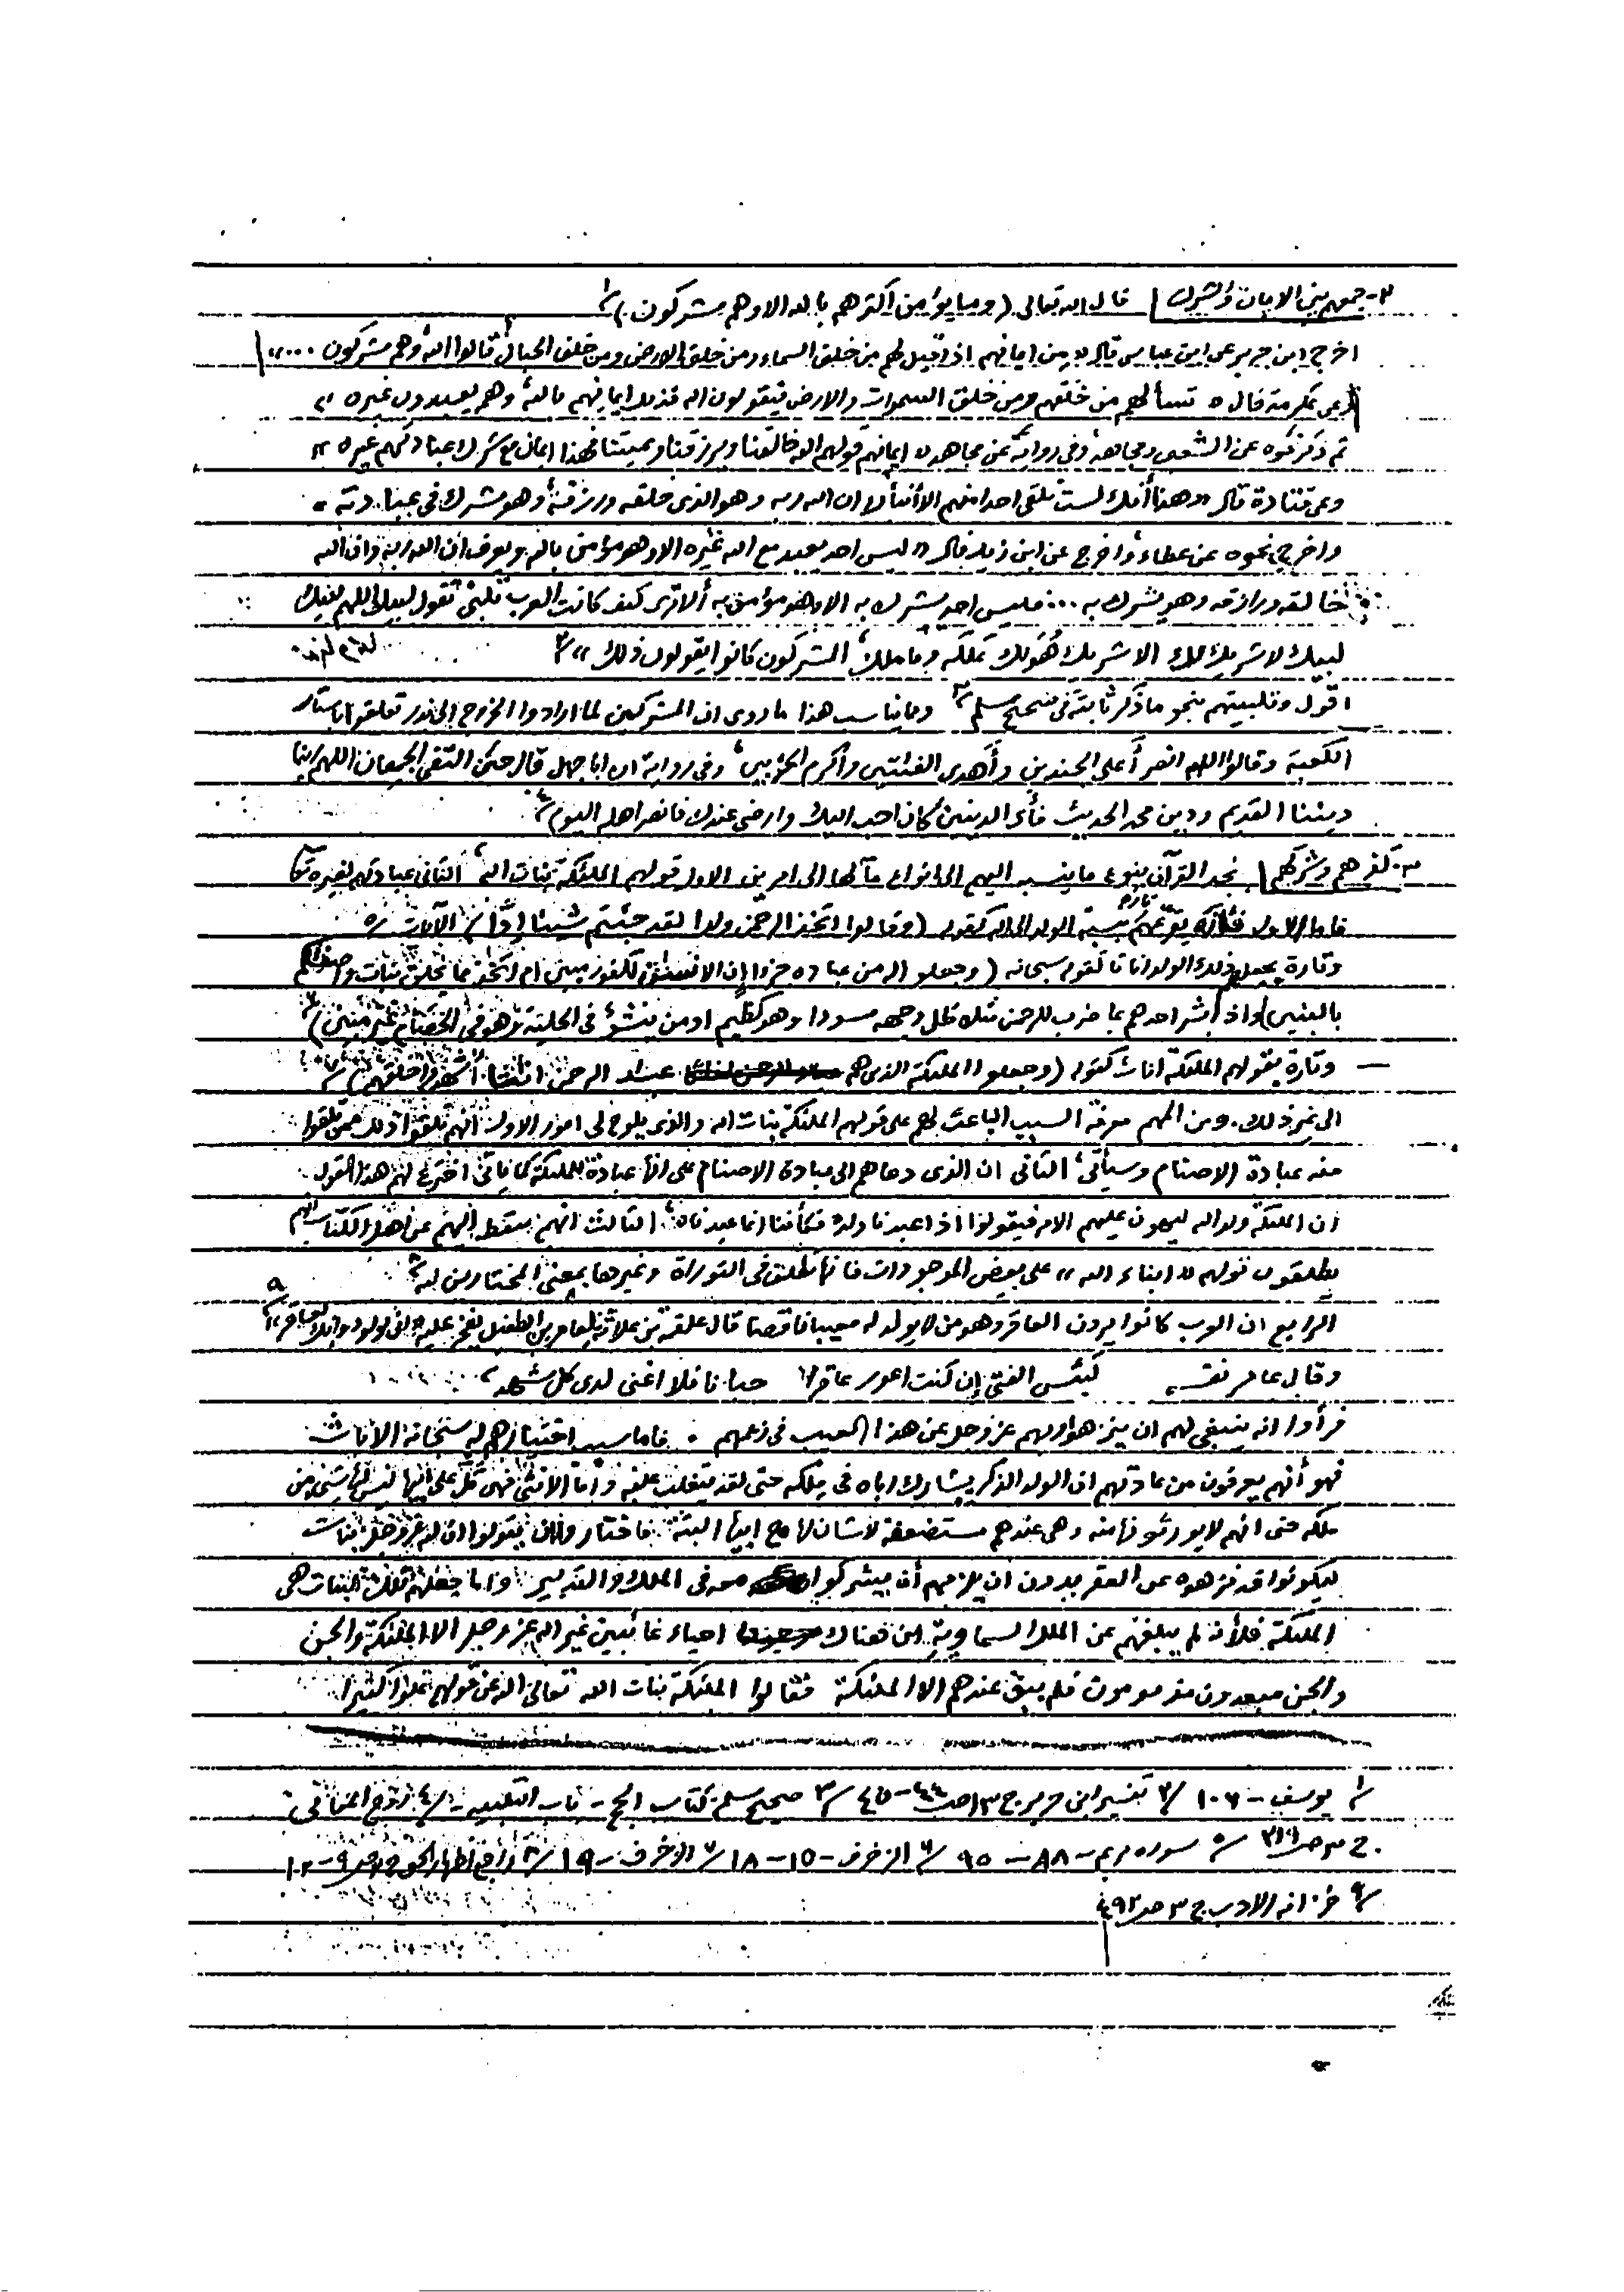 ٢- جمعهم بين الايمان والشرك | قال الله تعالى (وما يؤمن أكثرهم بالله الا وهم مشركون) /١
اخرج ابن جرير عن ابن عباس قال « من ايمانهم اذا قيل لهم من خلق السماء ومن خلق الارض ومن خلق الجبال قالوا الله وهم مشركون ... »
وعن عكرمة قال « تسألهم من خلقهم ومن خلق السموات والارض فيقولون الله فذلك ايمانهم بالله وهم يعبدون غيره »
ثم ذكر نحوه عن الشعبي ومجاهد، وفي رواية عن مجاهد « ايمانهم قولهم الله خالقنا ويرزقنا ويميتنا فهذا ايمان مع شرك عبادتهم غيره »
وعن قتادة قال « هذا أنك لست تلقى احدا منهم الا أنبأك ان الله ربه وهو الذي خلقه ورزقه وهو مشرك في عبادته »
واخرج نحوه عن عطاء، واخرج عن ابن زيد قال « ليس احد يعبد مع الله غيره الا وهو مؤمن بالله ويعرف ان الله ربه وان الله
خالقه ورازقه وهو يشرك به ... فليس احد يشرك به الا وهو مؤمن به ألا ترى كيف كانت العرب تلبي تقول لبيك اللهم لبيك
لبيك لا شريك لك الا شريك هو لك تملكه وما ملك، المشركون كانوا يقولون ذلك » /٢
اقول وتلبيتهم بنحو ما ذكر ثابتة في صحيح مسلم /٣ ومما يناسب هذا ما روى ان المشركين لما ارادوا الخروج الى بدر تعلقوا باستار
الكعبة وقالوا اللهم انصر أعلى الجندين وأهدى الفئتين وأكرم الحزبين، وفي رواية ان ابا جهل قال حين التقى الجمعان اللهم ربنا
ديننا القديم ودين محمد الحديث فأي الدينين كان احب اليك وارضى عندك فانصر اهله اليوم /٤
٣- كفرهم وشركهم | نجد القرآن ينوع ما ينسبه اليهم الى انواع مآلها الى امرين الاول قولهم الملئكة بنات الله، الثاني عبادتهم لغيره تعالى
فاما الاول فتارة نسبة الولد الى الله كقوله (وقالوا اتخذ الرحمن ولدا لقد جئتم شيئا إدّا) الآيات /٥
وتارة يجعل ذلك الولد اناثا كقوله سبحانه (وجعلوا له من عباده جزءا إن الانسان لكفور مبين ام اتخذ مما يخلق بنات واصفاكم
بالبنين) واذا بشر احدهم بما ضرب للرحمن مثلا ظل وجهه مسودا وهو كظيم اومن ينشؤ في الحلية وهو في الخصام غير مبين) /٦
— وتارة بقولهم الملئكة اناث كقوله (وجعلوا الملئكة الذين هم عباد الرحمن اناثا اشهدوا خلقهم) /٧
الى غير ذلك. ومن المهم معرفة السبب الباعث لهم على قولهم الملئكة بنات الله والذي يلوح لي امور الاول انهم تلقوا ذلك ممن تلقوا
منه عبادة الاصنام وسيأتي، الثاني ان الذي دعاهم الى عبادة الاصنام على انها عبادة للملئكة كما يأتي اخترع لهم هذا القول
ان الملئكة ولد الله ليهون عليهم الامر فيقولوا اذا عبدنا ولده فكأننا انما عبدناه، الثالث انهم سقط اليهم عن اهل الكتاب انهم
يطلقون قولهم « ابناء الله » على بعض الموجودات فانها تطلق في التوراة وغيرها بمعنى المختارين لله /٨
الرابع ان العرب كانوا يرون العاقر وهو من لا يولد له معيبا ناقصا قال علقمة بن علاثة لعامر بن الطفيل يفخر عليه اني لولود وانك لعاقر » /٩
وقال عامر نفسه لبئس الفتى إن كنت اعور عاقرا جبانا فلا اغنى لدى كل مشهد
فرأوا انه ينبغي لهم ان ينزهوا ربهم عز وجل عن هذا العيب في زعمهم . فاما سبب اختيارهم له سبحانه الاناث
فهو أنهم يعرفون من عادتهم ان الولد الذكر يشارك اباه في ملكه حتى لقد يتغلب عليه واما الانثى فهي كل على ابيها ليس لها شيء من
ملكه حتى انهم لا يورثونها منه وهي عندهم مستضعفة لا شأن لها مع ابيها البتة. فاختاروا ان يقولوا ان له عز وجل بنات
ليكونوا قد نزهوه عن العقر بدون ان يلزمهم أن يشركوا معه في الملك والتدبير، واما جعلهم تلك البنات هي
الملئكة فلأنه لم يبلغهم عن الملل السماوية ان هناك احياء غائبين غير الله عز وجل الا الملئكة والجن
والجن مبعدون مذمومون فلم يبق عندهم الا الملئكة فقالوا الملئكة بنات الله تعالى الله عن قولهم علوا كبيرا.
/١ يوسف - ١٠٦ /٢ تفسير ابن جرير ج ١٣ ص ٤٤ - ٤٥ /٣ صحيح مسلم كتاب الحج - باب التلبية - /٤ روح المعاني
ج ٣ ص ٢١٦ /٥ سورة مريم - ٨٨ - ٩٥ /٦ الزخرف - ١٥ - ١٨ /٧ الزخرف - ١٩ /٨ راجع اظهار الحق ص ٩ - ١٢
/٩ خزانة الادب ج ٣ ص ٤٩٢